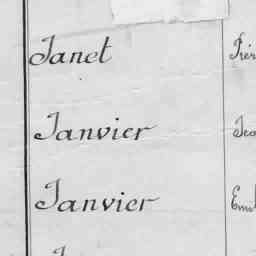 Janet
Janvier
Janvier